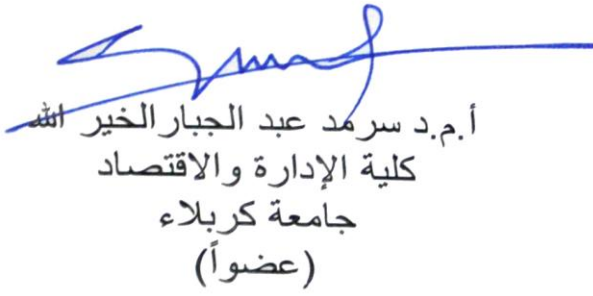 أ.م.د سرمد عبد الجبار الخير الله
كلية الإدارة والاقتصاد
جامعة كربلاء
(عضواً)